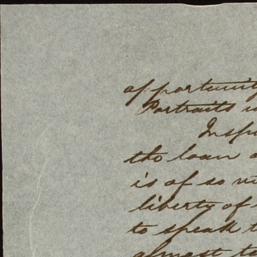 opportunity
Portraits
the loan
is of so
liberty of
to speak
almost to